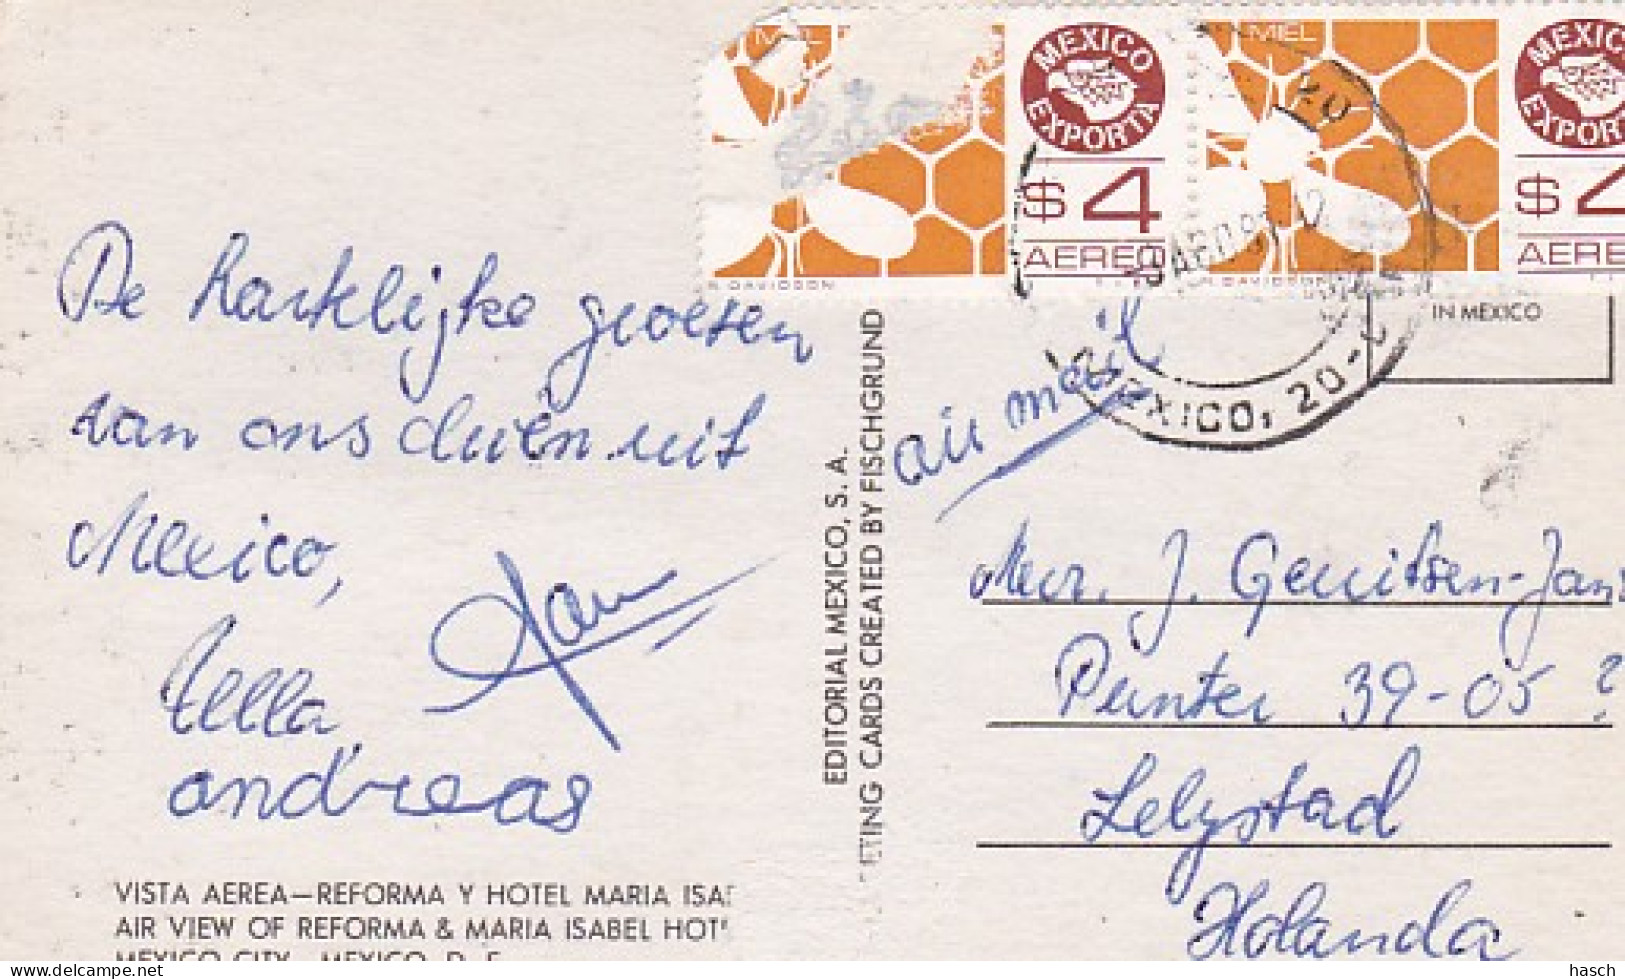 MIEL
MEXICO
EXPORTA
$4
AEREO
R. DAVIDSON
MIEL
MEXICO
EXPORTA
$4
AERE
R. DAVIDSON
IN MEXICO
MEXICO, 20
De hartelijke groeten
van ons drieën uit
Mexico,
Jan
Wella
andreas
air mail
Mevr. J. Gerritsen-Jans
Punter 39-05 ?
Lelystad
Holanda
EDITORIAL MEXICO, S. A.
ETING CARDS CREATED BY FISCHGRUND
VISTA AEREA—REFORMA Y HOTEL MARIA ISA
AIR VIEW OF REFORMA & MARIA ISABEL HOT
MEXICO CITY MEXICO, D. F.
hasch